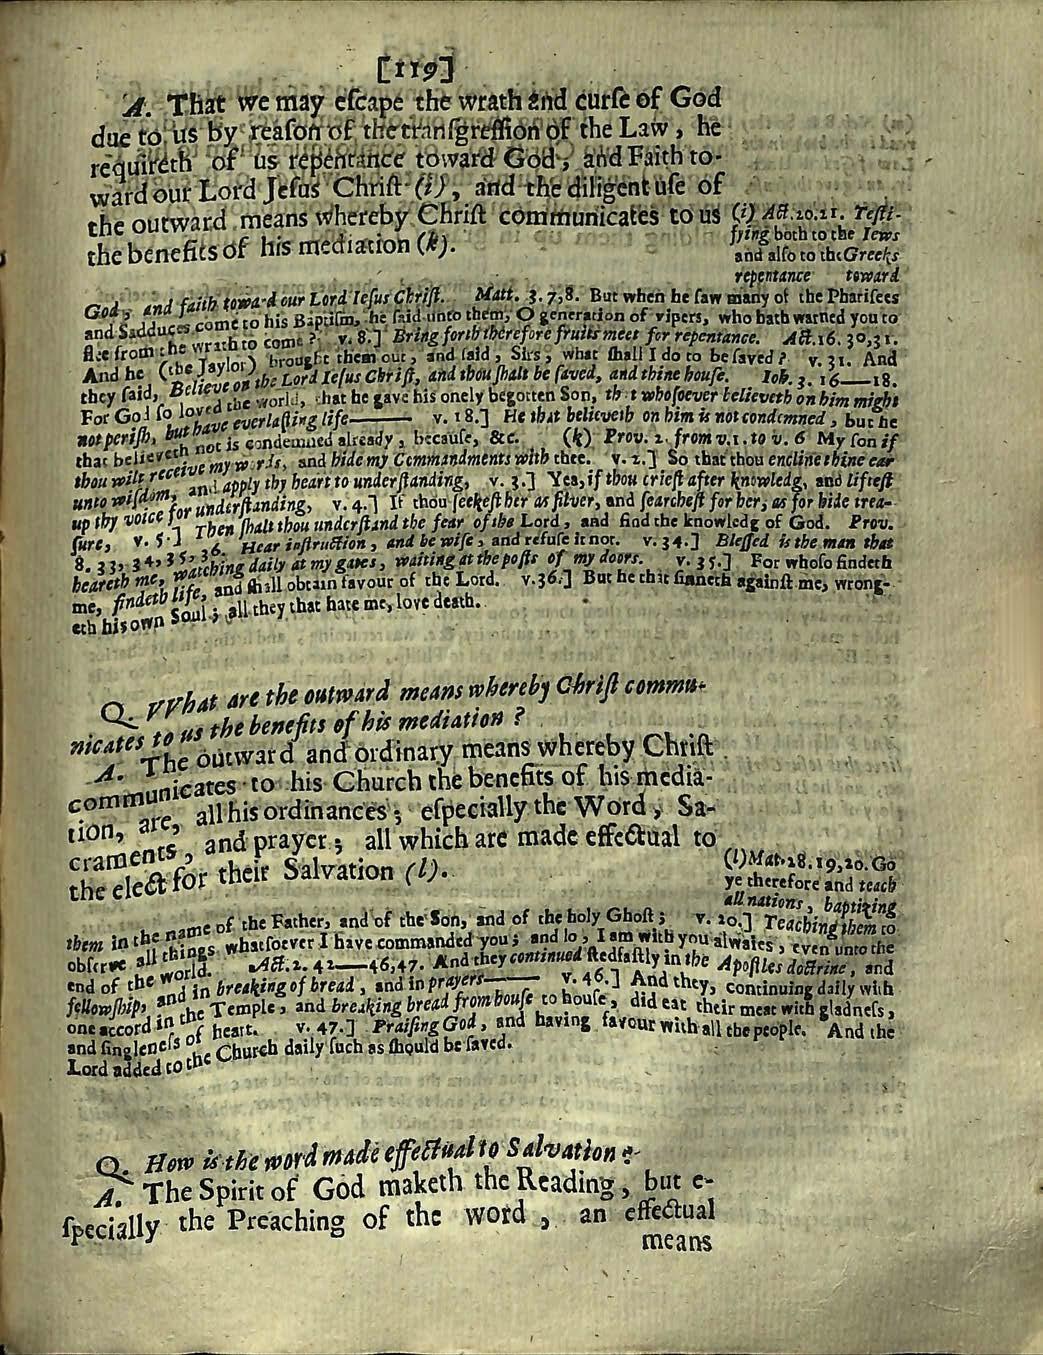 [119]
A. That we may eſcape the wrath and curſe of God
due to us by reaſon of the tranſgreſſion of the Law, he
requireth of us repentance toward God, and Faith to-
ward our Lord Jeſus Chriſt (i), and the diligent uſe of
the outward means whereby Chriſt communicates to us
the benefits of his mediation (k).
(i) Act. 20. 21. Teſti-
fying both to the Iews
and alſo to the Greeks
repentance toward
God, and faith toward our Lord Ieſus Chriſt. Matt. 3. 7, 8. But when he ſaw many of the Phariſees
and Sadduces come to his Baptiſm, he ſaid unto them, O generation of vipers, who hath warned you to
flee from the wrath to come? v. 8.] Bring forth therefore fruits meet for repentance. Act. 16. 30, 31.
And he (the Jaylor) brought them out, and ſaid, Sirs, what ſhall I do to be ſaved? v. 31. And
they ſaid, Believe on the Lord Ieſus Chriſt, and thou ſhalt be ſaved, and thine houſe. Ioh. 3. 16—18.
For God ſo loved the world, that he gave his onely begotten Son, that whoſoever believeth on him might
not periſh, but have everlaſting life—— v. 18.] He that believeth on him is not condemned, but he
that believeth not is condemned already, becauſe, &c. (k) Prov. 2. from v. 1. to v. 6 My ſon if
thou wilt receive my words, and hide my Commandments with thee. v. 2.] So that thou encline thine ear
unto wiſdom, and apply thy heart to underſtanding, v. 3.] Yea, if thou crieſt after knowledg, and lifteſt
up thy voice for underſtanding, v. 4.] If thou ſeekeſt her as ſilver, and ſearcheſt for her, as for hide trea-
ſure, v. 5.] Then ſhalt thou underſtand the fear of the Lord, and find the knowledg of God. Prov.
8. 33, 34, 35, 36. Hear inſtruction, and be wiſe, and refuſe it not. v. 34.] Bleſſed is the man that
heareth me, watching daily at my gates, waiting at the poſts of my doors. v. 35.] For whoſo findeth
me, findeth life, and ſhall obtain favour of the Lord. v. 36.] But he that ſinneth againſt me, wrong-
eth his own Soul; all they that hate me, love death.
Q. VVhat are the outward means whereby Chriſt commu-
nicates to us the benefits of his mediation?
A. The outward and ordinary means whereby Chriſt
communicates to his Church the benefits of his media-
tion, are, all his ordinances; eſpecially the Word, Sa-
craments, and prayer; all which are made effectual to
the elect for their Salvation (l).
(l) Mat. 28. 19, 20. Go
ye therefore and teach
all nations, baptizing
them in the name of the Father, and of the Son, and of the holy Ghoſt; v. 20.] Teaching them to
obſerve all things whatſoever I have commanded you; and lo, I am with you alwaies, even unto the
end of the world. Act. 2. 42—46, 47. And they continued ſtedfaſtly in the Apoſtles doctrine, and
fellowſhip, and in breaking of bread, and in prayers—— v. 46.] And they, continuing daily with
one accord in the Temple, and breaking bread from houſe to houſe, did eat their meat with gladneſs,
and ſingleneſs of heart. v. 47.] Praiſing God, and having favour with all the people. And the
Lord added to the Church daily ſuch as ſhould be ſaved.
Q. How is the word made effectual to Salvation?
A. The Spirit of God maketh the Reading, but e-
ſpecially the Preaching of the word, an effectual
means